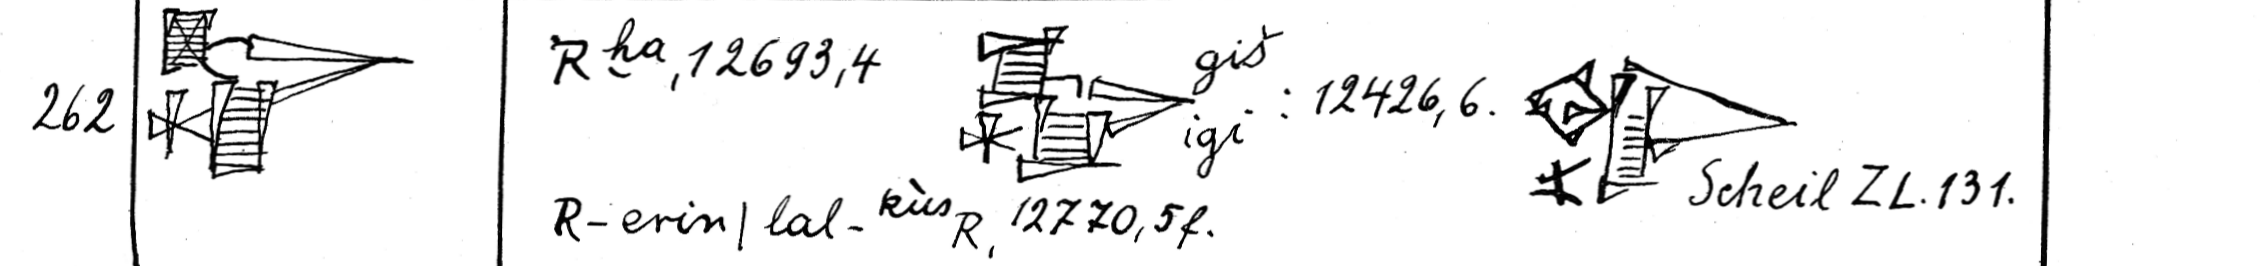 262
R ḫa, 12693,4
giš
igi : 12426, 6.
Scheil ZL. 131.
R - erin | lal - kùš R, 12770, 5f.